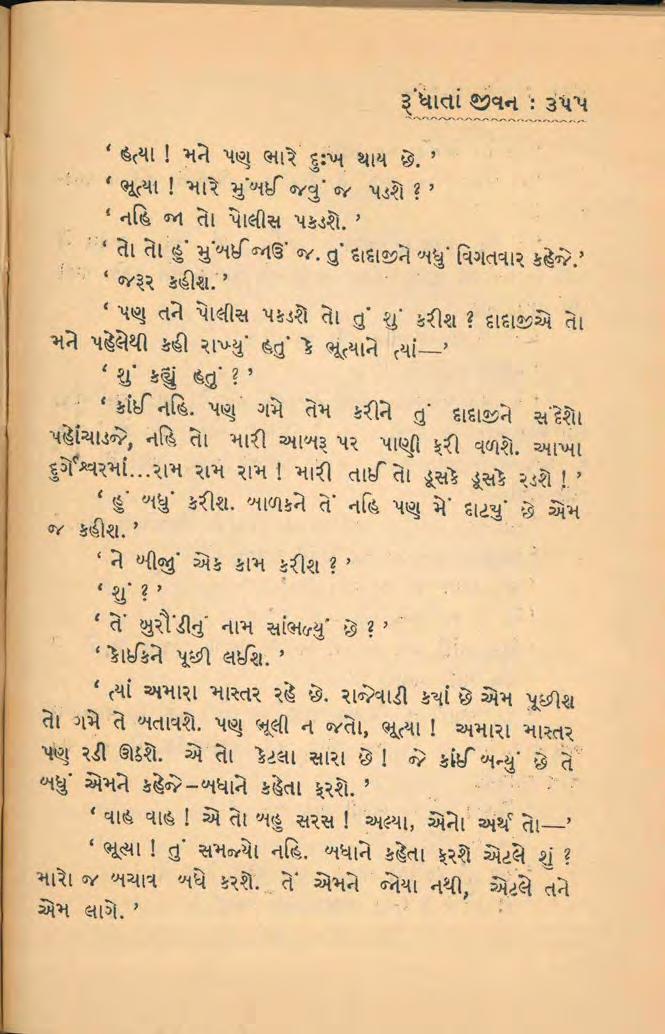 રૂંધાતાં જીવન : ૩૫૫
‘ હત્યા ! મને પણ ભારે દુઃખ થાય છે. ’
‘ ભૂત્યા ! મારે મુંબઈ જવું જ પડશે ? ’
‘ નહિ જા તો પોલીસ પકડશે. ’
‘ તો તો હું મુંબઈ જાઉં જ. તું દાદાજીને બધું વિગતવાર કહેજે.’
‘ જરૂર કહીશ.’
‘ પણ તને પોલીસ પકડશે તો તું શું કરીશ ? દાદાજીએ તો
મને પહેલેથી કહી રાખ્યું હતું કે ભૂત્યાને ત્યાં—’
‘ શું કહ્યું હતું ? ’
‘ કાંઈ નહિ. પણ ગમે તેમ કરીને તું દાદાજીને સંદેશો
પહોંચાડજે, નહિ તો મારી આબરૂ પર પાણી ફરી વળશે. આખા
દુર્ગેશ્વરમાં...રામ રામ રામ ! મારી તાઈ તો ડૂસકે ડૂસકે રડશે ! ’
‘ હું બધું કરીશ. બાળકને તેં નહિ પણ મેં દાટ્યું છે એમ
જ કહીશ. ’
‘ ને બીજું એક કામ કરીશ ? ’
‘ શું ? ’
‘ તેં બુરૌંડીનું નામ સાંભળ્યું છે ? ’
‘ કોઈકને પૂછી લઈશ. ’
‘ ત્યાં અમારા માસ્તર રહે છે. રાજેવાડી ક્યાં છે એમ પૂછીશ
તો ગમે તે બતાવશે. પણ ભૂલી ન જતો, ભૂત્યા ! અમારા માસ્તર
પણ રડી ઊઠશે. એ તો કેટલા સારા છે ! જે કાંઈ બન્યું છે તે
બધું એમને કહેજે–બધાને કહેતા ફરશે. ’
‘ વાહ વાહ ! એ તો બહુ સરસ ! અલ્યા, એનો અર્થ તો—’
‘ ભૂત્યા ! તું સમજ્યો નહિ. બધાને કહેતા ફરશે એટલે શું ?
મારો જ બચાવ બધે કરશે. તેં એમને જોયા નથી, એટલે તને
એમ લાગે. ’